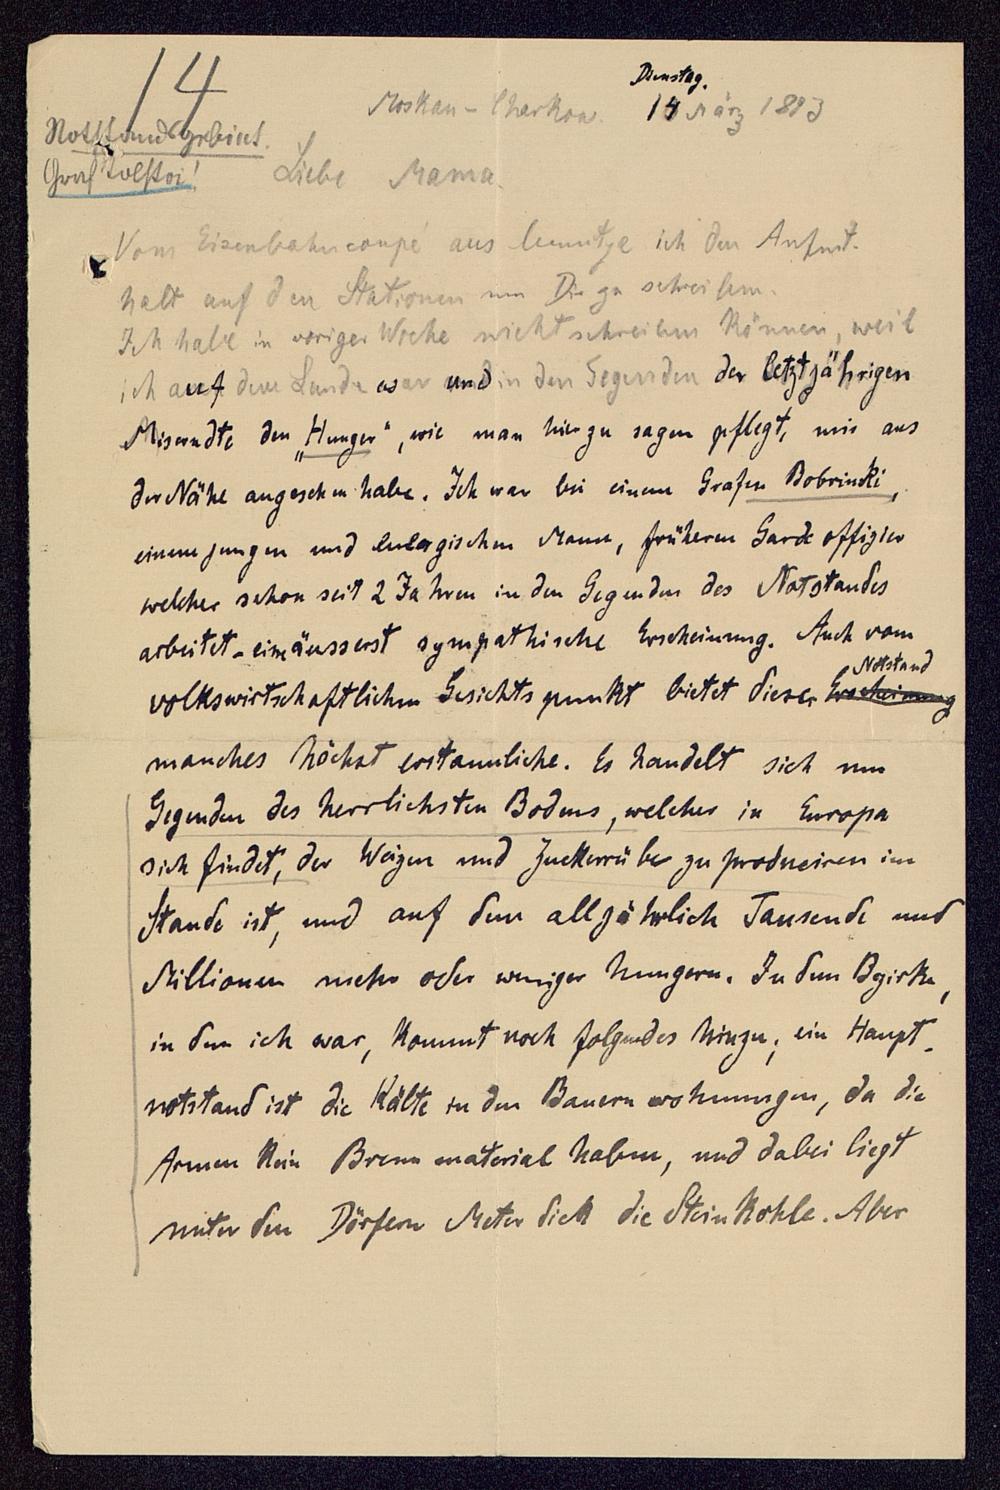 14
Dienstag.
Moskau - Charkow. 14 März 1893
Notstandsgebiet.
Graf Tolstoi!
Liebe Mama.
Vom Eisenbahncoupé aus benutze ich den Aufent-
halt auf den Stationen um Dir zu schreiben.
Ich habe in voriger Woche nicht schreiben können, weil
ich auf dem Lande war und in den Gegenden der letztjährigen
Miserndte den „Hunger", wie man hier zu sagen pflegt, mir aus
der Nähe angesehen habe. Ich war bei einem Grafen Bobrinski,
einem jungen und energischen Mann, früheren Garde offizier
welcher schon seit 2 Jahren in den Gegenden des Notstandes
arbeitet - eine äusserst sympathische Erscheinung. Auch vom
volkswirtschaftlichen Gesichtspunkt bietet dieser Erscheinung Notstand
manches höchst erstaunliche. Es handelt sich um
Gegenden des herrlichsten Bodens, welcher in Europa
sich findet, der Weizen und Zuckerrübe zu produciren im
Stande ist, und auf dem alljährlich Tausende und
Millionen mehr oder weniger hungern. In dem Bezirke,
in dem ich war, kommt noch folgendes hinzu; ein Haupt-
notstand ist die Kälte in den Bauern wohnungen, da die
Armen kein Brenn material haben, und dabei liegt
unter den Dörfern Meter dick die Steinkohle. Aber